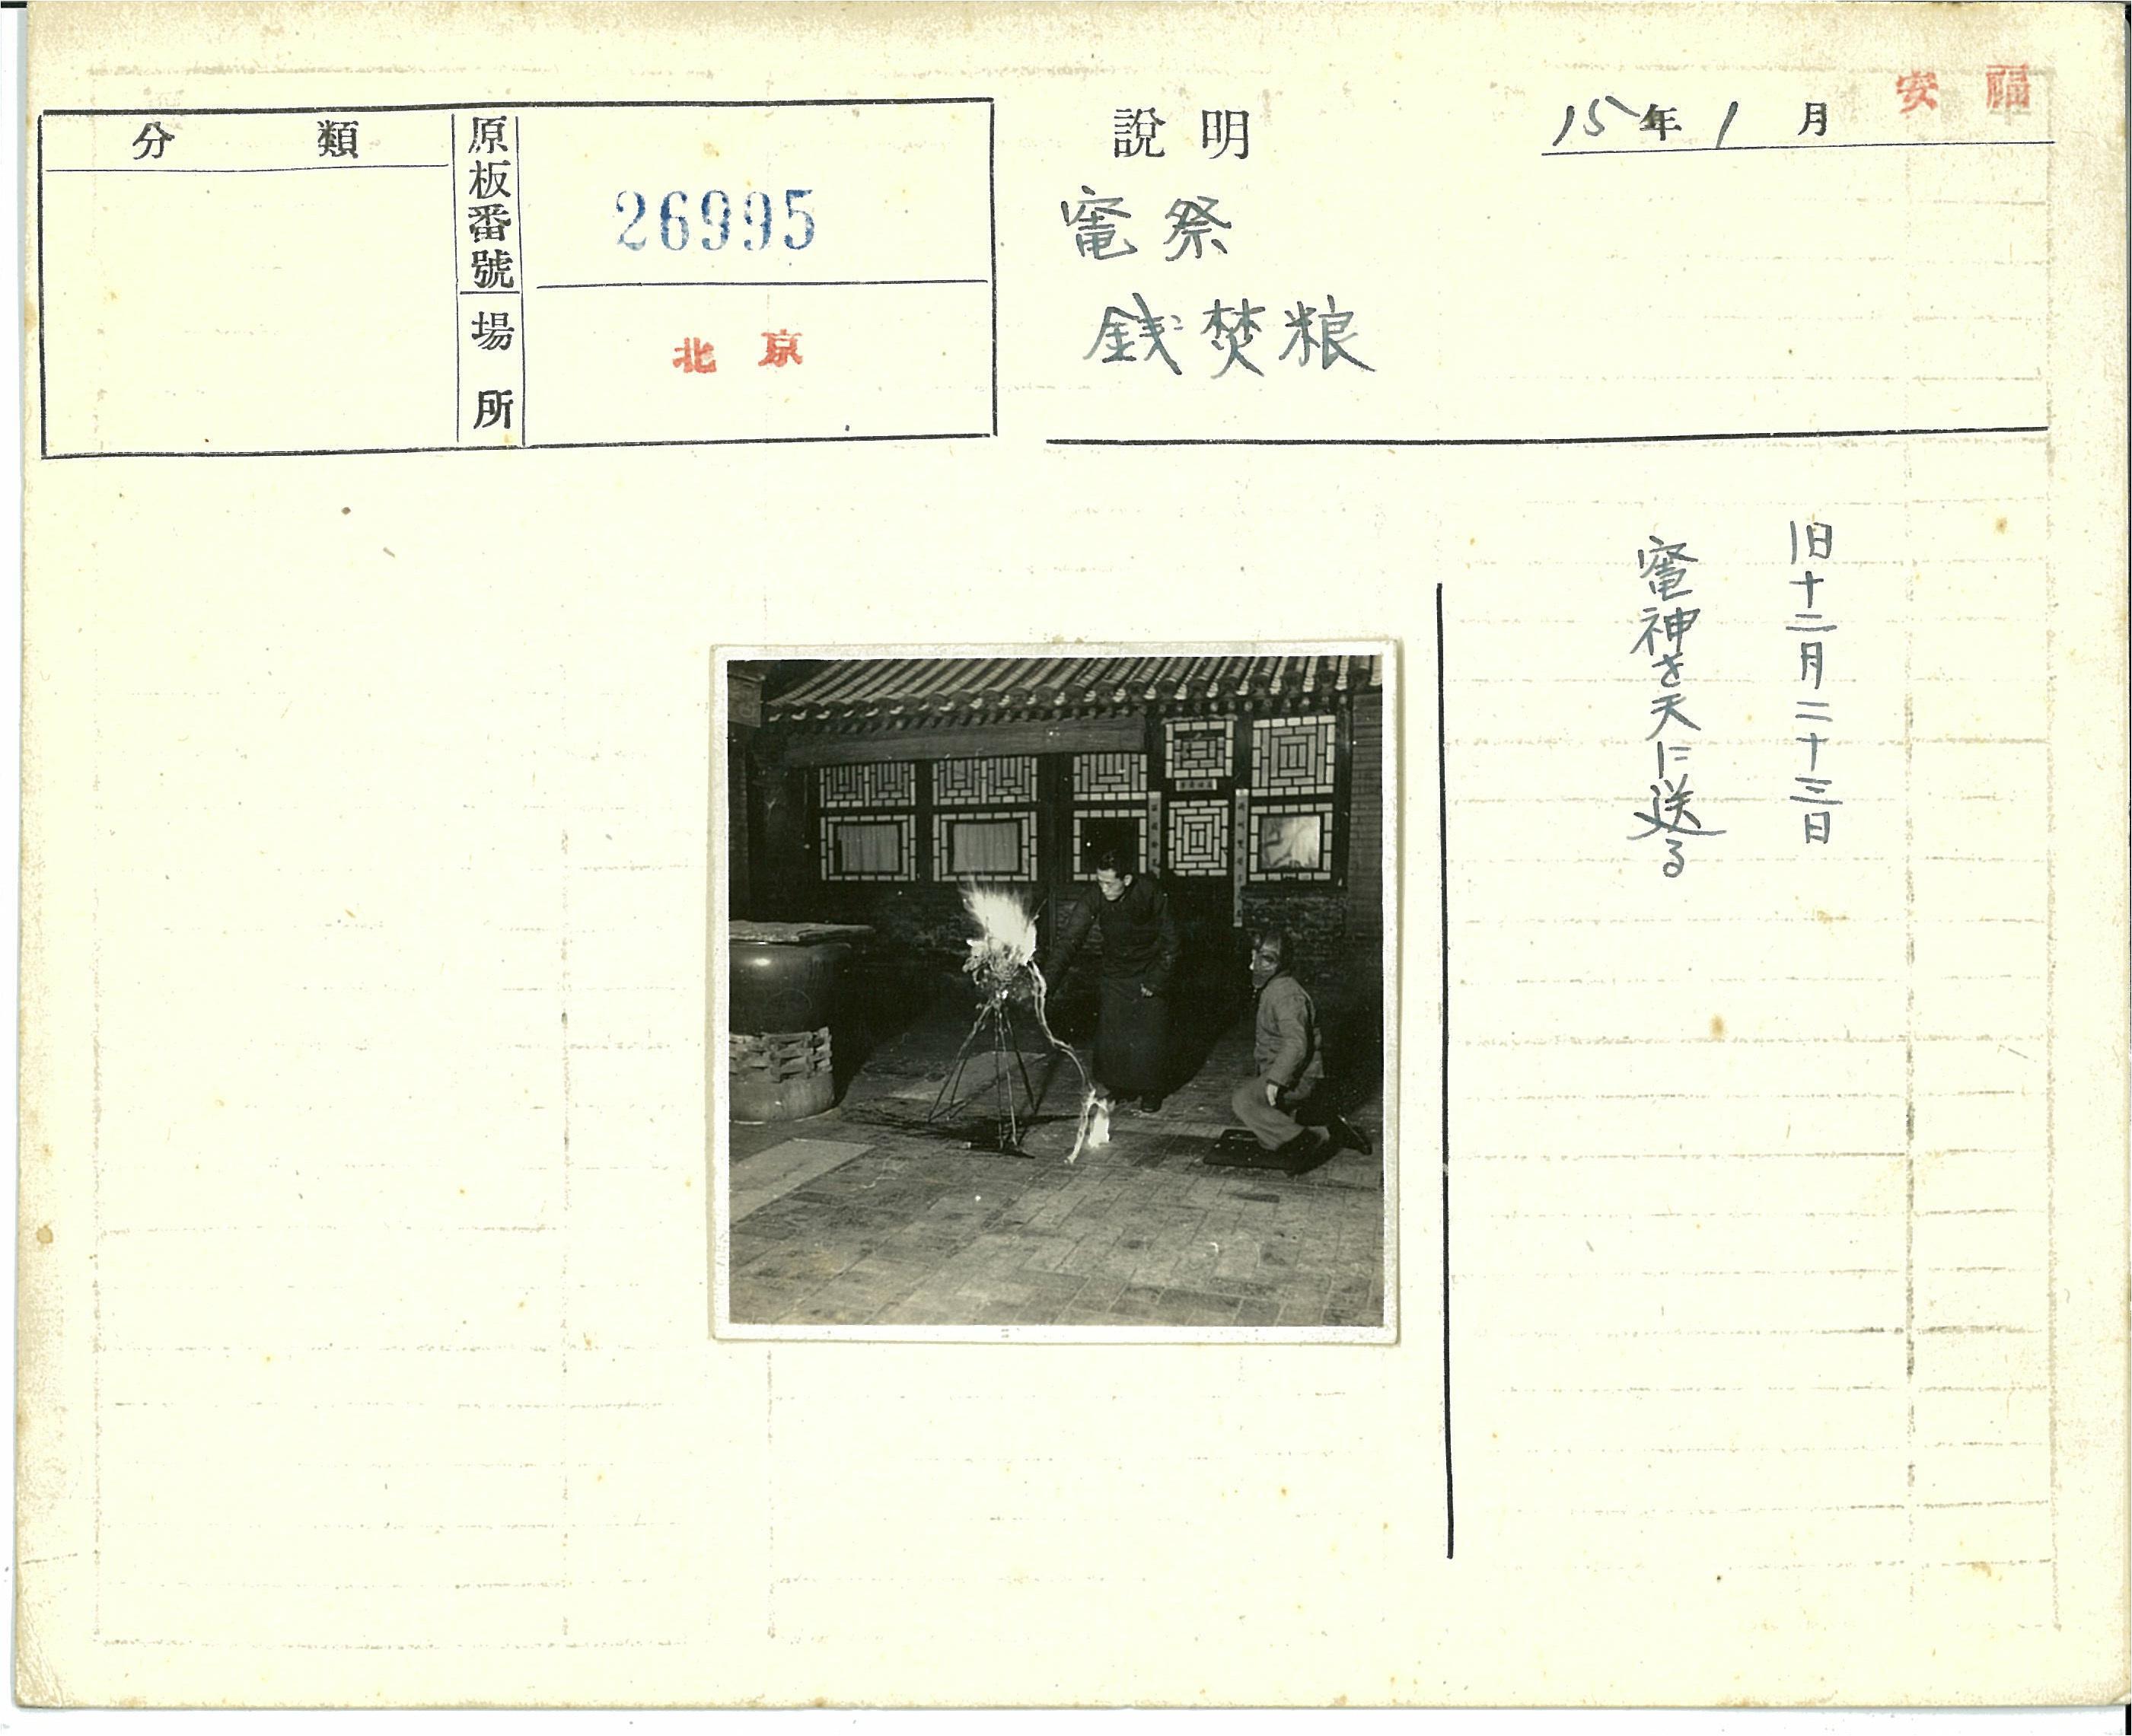 分類
原板番號
26995
場所
北京
說明
15年1月
安福
竃祭
銭焚粮
旧十二月二十三日
竃神を天に送る